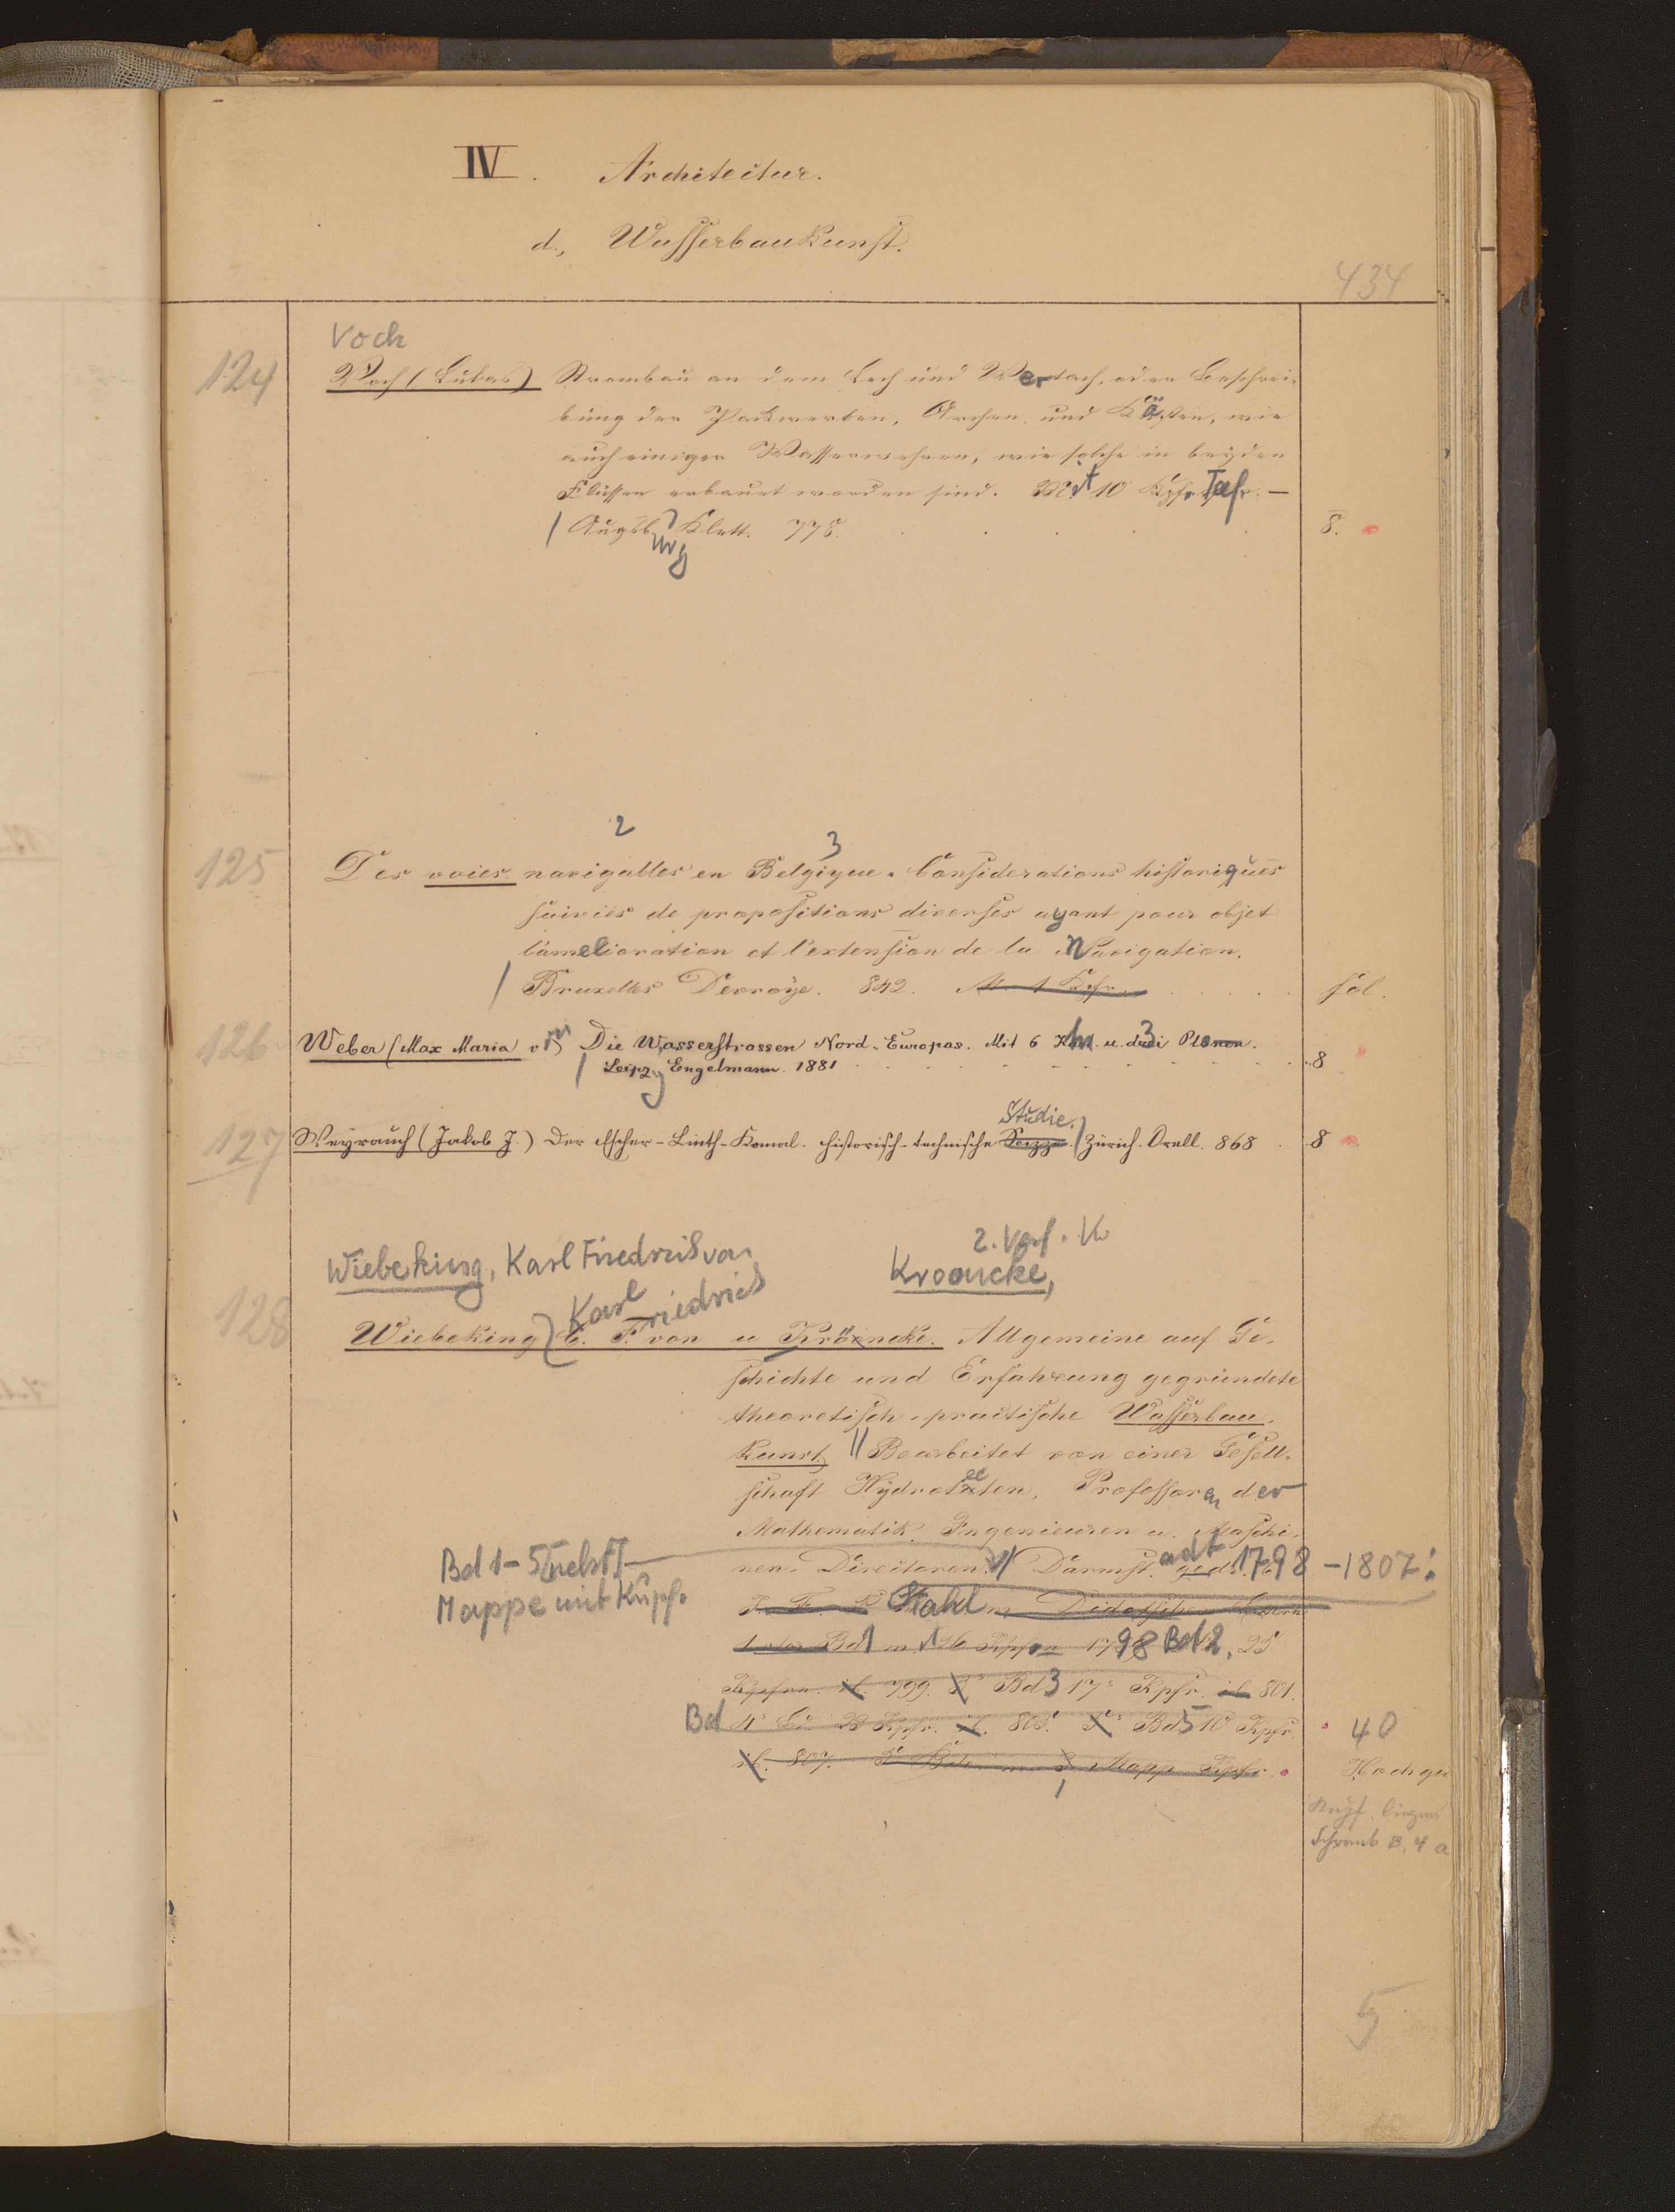 IV. Architectur.
d., Wasserbaukunst.
434
Voch
124 Voch (Lukas) Strombau an dem Lech und Wertach, oder Beschrei-
bung der Packwerken, Archen und Kästen, wie
auch einiger Wasserwehren, wie solche in beyden
Flüssen erbauet worden sind. Mit 10 Kpfr Taf. –
Augsburg Klett. 778. 8.
2 3
125 Des voies navigables en Belgique. Considerations historiques
suivies de propositions diverses ayant pour objet
l'amelioration et l'extension de la Navigation.
Bruxelles Devroye. 842. M 1 Kpfr. fol.
126 Weber (Max Maria von) Die Wasserstrassen Nord-Europas. Mit 6 u. 3 Planen.
Leipzg Engelmann. 1881 8
Studie.
127 Weyrauch (Jakob J.) Der Escher-Linth-Kanal. historisch-technische Scizze. Zürich. Orell. 868 8
2. Verf. V
Wiebeking, Karl Friedrich von Kroencke,
Karl Friedrich
128 Wiebeking C. F. von u Kröncke. Allgemeine auf Ge-
schichte und Erfahrung gegründete
theoretisch-practische Wasserbau-
kunst. Bearbeitet von einer Gesell-
schaft Hydrotecten, Professoren der
Mathematik, Ingenieuren u. Maschi-
Bd 1-5 [nebst] nen-Directoren. Darmstadt 1798-1807.
Mappe mit Kupf. Stahl
Bd 1 m 26 Kpfrn 1798 Bd 2, 25
Kpfrn. ib. 799. Bd 3 17 Kpfr. ib 801.
Bd 4 28 Kpfr. ib. 803. 5 Bd 5 10 Kpfr. 40
ib. 807. Mapp Kpfr. Hochqu
Kupf. liegen
Schrank B. 4 a
5